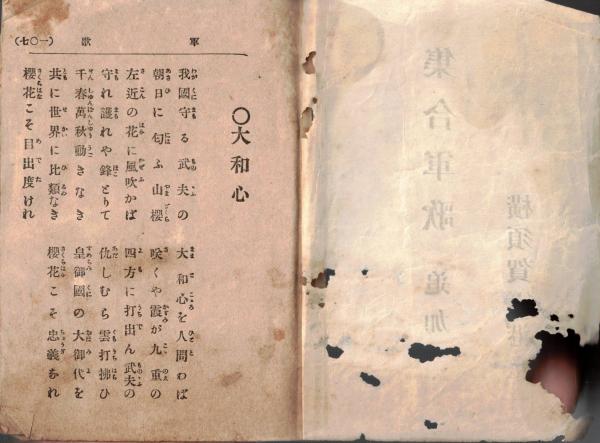 軍歌 (一〇七)
〇大和心
我國守る武夫の 大和心を人問わば
朝日に匂ふ山櫻 咲くや霞が九重の
左近の花に風吹かば 四方に打出ん武夫の
守れ護れや鋒とりて 仇しむら雲打拂ひ
千春萬秋動きなき 皇御國の大御代を
共に世界に比類なき 櫻花こそ忠義なれ
櫻花こそ目出度けれ
横須賀
集合軍歌 追加